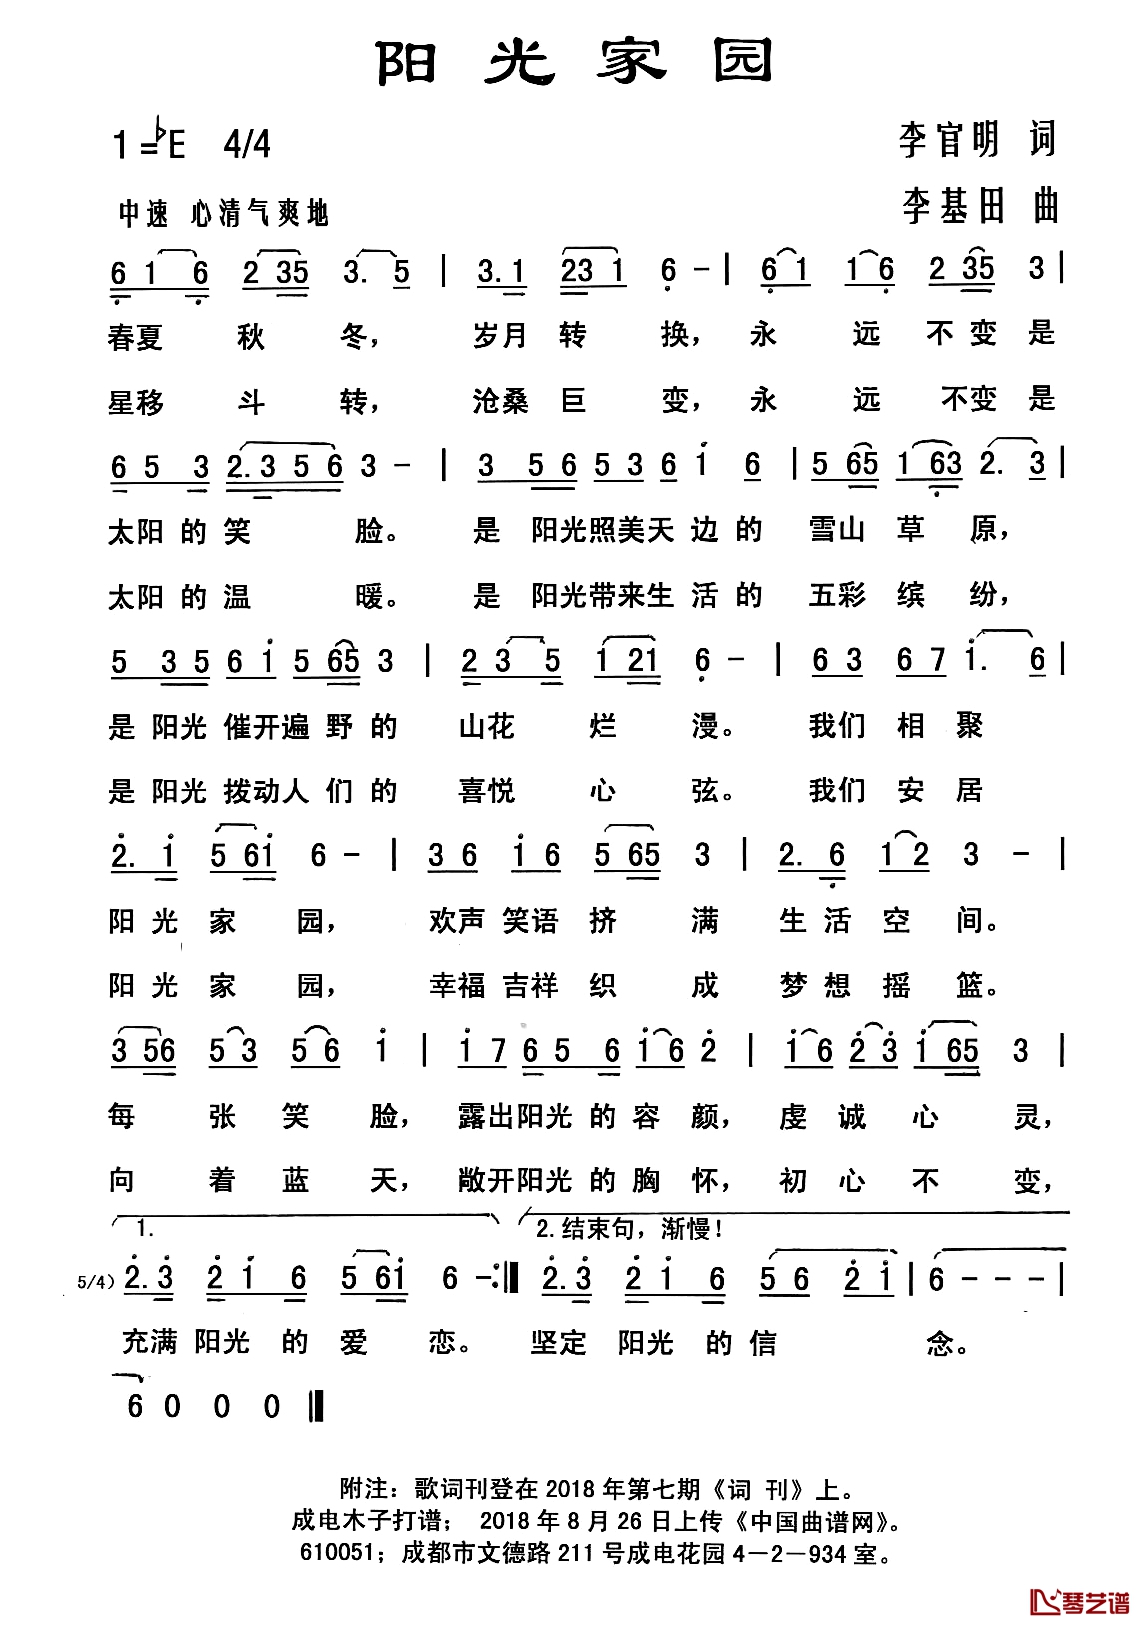 阳光家园
1=♭E 4/4
李官明 词
中速 心清气爽地
李基田 曲
6 1 6 2 35 3. 5 | 3.1 23 1 6 - | 6 1 1 6 2 35 3 |
春夏 秋 冬， 岁月 转 换， 永 远 不 变 是
星移 斗 转， 沧桑 巨 变， 永 远 不变 是
6 5 3 2.3 5 6 3 - | 3 5 6 5 3 6 i 6 | 5 65 1 63 2. 3 |
太阳 的 笑 脸。 是 阳光照美天 边 的 雪山 草 原，
太阳 的 温 暖。 是 阳光带来生 活 的 五彩 缤 纷，
5 3 5 6 i 5 65 3 | 2 3 5 1 21 6 - | 6 3 6 7 i. 6 |
是 阳光 催开遍 野 的 山花 烂 漫。 我们 相 聚
是 阳光 拨动人 们 的 喜悦 心 弦。 我们 安 居
2. i 5 6i 6 - | 3 6 i 6 5 65 3 | 2. 6 1 2 3 - |
阳 光 家 园， 欢声 笑语 挤 满 生 活 空 间。
阳 光 家 园， 幸福 吉祥 织 成 梦 想 摇 篮。
3 56 5 3 5 6 i | i 7 6 5 6 i 6 2 | i 6 2 3 i 65 3 |
每 张 笑 脸， 露出阳光 的 容 颜， 虔 诚 心 灵，
向 着 蓝 天， 敞开阳光 的 胸 怀， 初 心 不 变，
1. 2.结束句，渐慢！
5/4) 2.3 2 i 6 5 6i 6 -:‖ 2.3 2 i 6 5 6 2 i | 6 - - - |
充满 阳光 的 爱 恋。 坚定 阳光 的 信 念。
6 0 0 0 ‖
附注：歌词刊登在 2018 年第七期《词 刊》上。
成电木子打谱； 2018 年 8 月 26 日上传《中国曲谱网》。
610051；成都市文德路 211 号成电花园 4－2－934 室。
琴艺谱